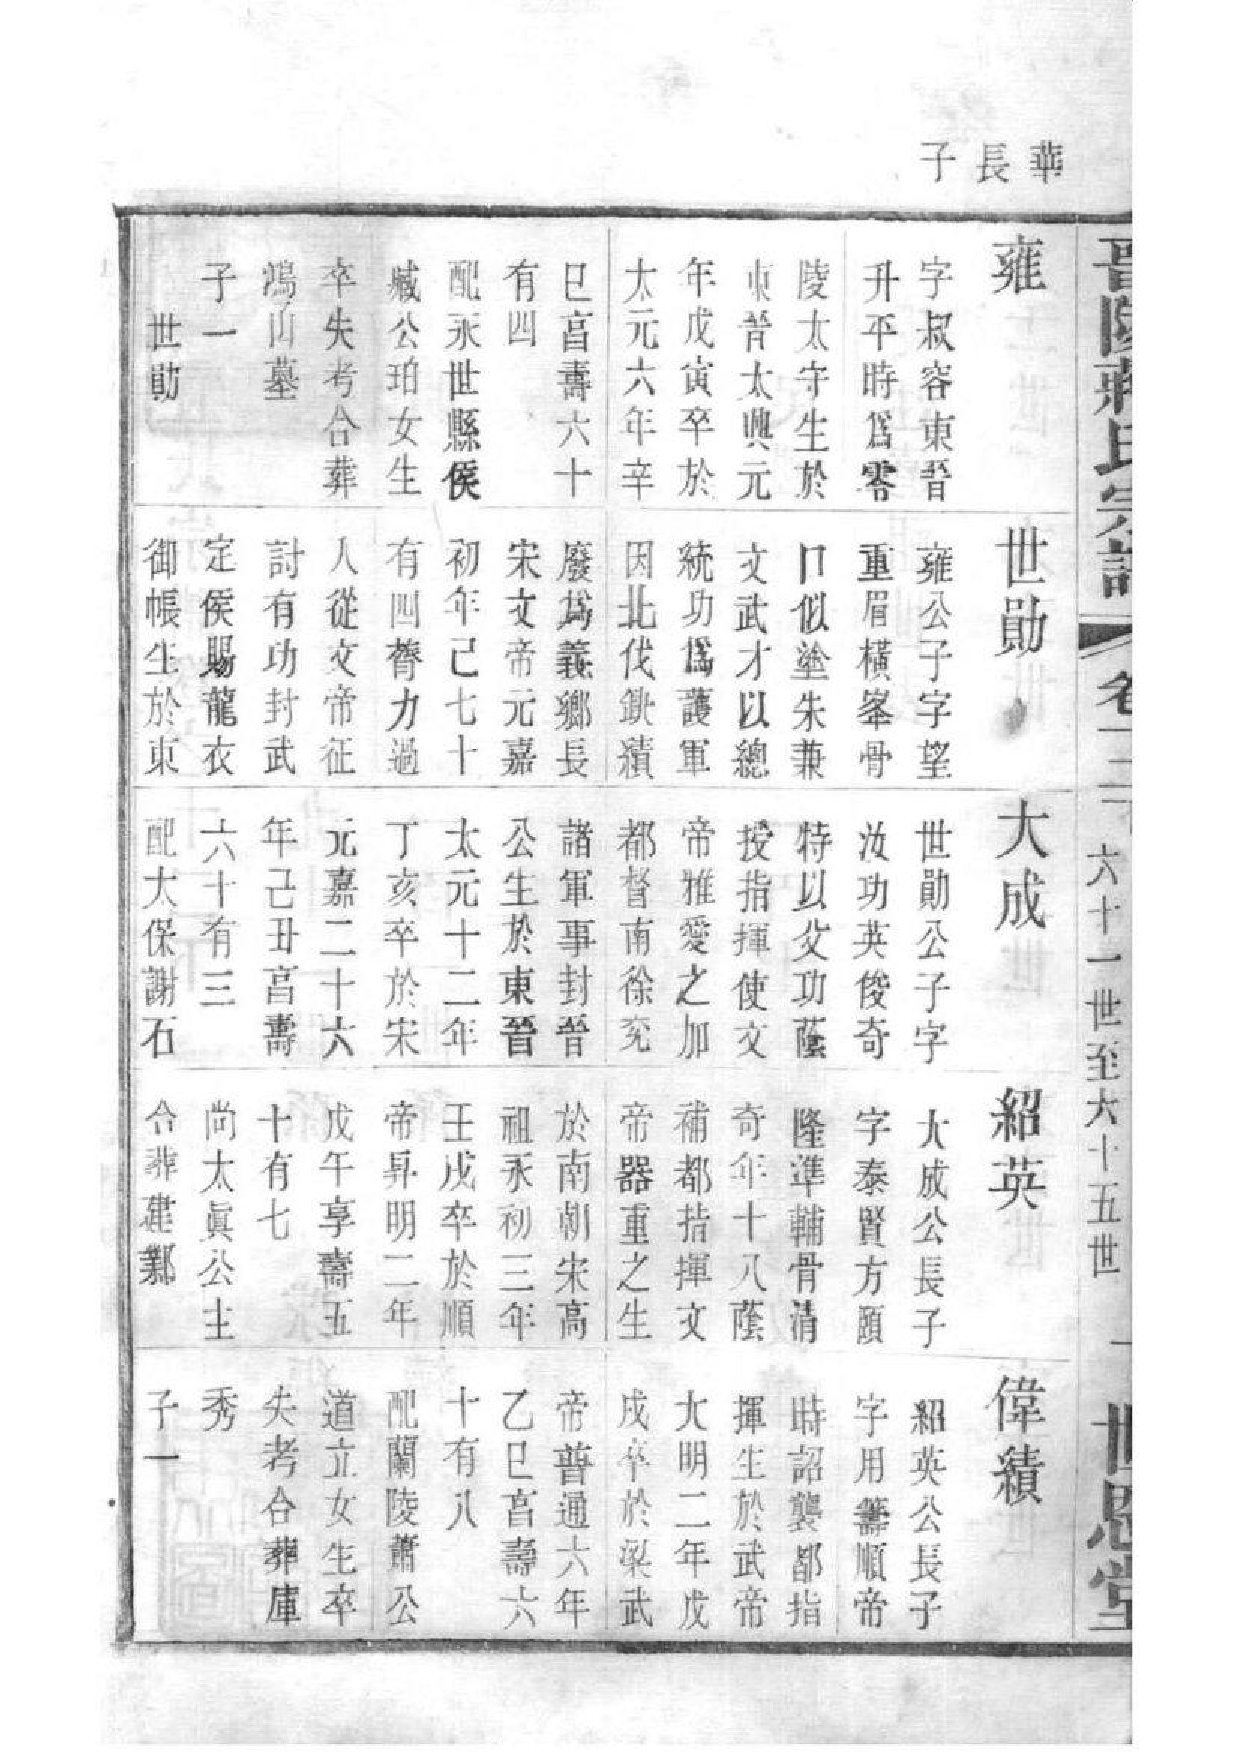 華長子
晋陵蔣氏宗譜
卷
六十一世至六十五世
一
世恩堂
雍
字叔容東晉
升平時爲零
陵太守生於
東晉太興元
年戊寅卒於
太元六年辛
巳享壽六十
有四
配永世縣侯
臧公珀女生
卒失考合葬
鴻山墓
子一
世勛
世勛
雍公子字望
重眉橫峯骨
口似塗朱兼
文武才以總
統功爲護軍
因北伐銚績
廢爲義鄉長
宋文帝元嘉
初年已七十
有四膂力過
人從文帝征
討有功封武
定侯賜龍衣
御帳生於東
大成
世勛公子字
汝功英俊奇
特以父功蔭
授指揮使文
帝雅愛之加
都督南徐兖
諸軍事封晉
公生於東晉
太元十二年
丁亥卒於宋
元嘉二十六
年己丑享壽
六十有三
配太保謝石
紹英
大成公長子
字泰賢方頤
隆準輔骨清
奇年十八蔭
補都指揮文
帝器重之生
於南朝宋高
祖永初三年
壬戌卒於順
帝昇明二年
戊午享壽五
十有七
尚太眞公主
合葬建鄴
偉績
紹英公長子
字用籌順帝
時詔襲都指
揮生於武帝
大明二年戊
戌卒於梁武
帝普通六年
乙巳享壽六
十有八
配蘭陵蕭公
道立女生卒
失考合葬庫
秀
子一